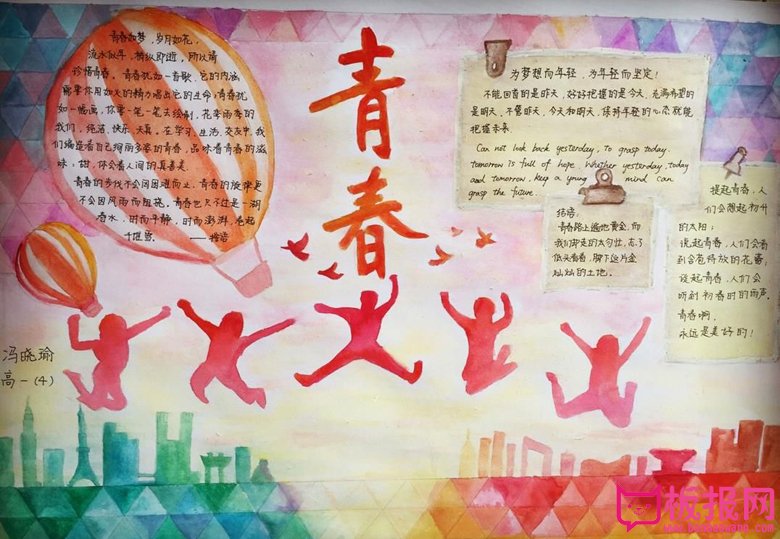 青春
青春如梦，岁月如花，
流水似年，稍纵即逝，所以请
珍惜青春，青春犹如一首歌，它的内涵
需要你用如火的精力唱出它的生命；青春犹
如一幅画，你要一笔一笔去绘制，花季雨季的
我们，纯洁、快乐、天真，在学习、生活、交友中，我
们编造着自己绚丽多姿的青春，品味着青春的滋
味，甜，体会着人间的真善美。
青春的步伐不会因困难而止，青春的旋律更
不会因风雨而阻挠。青春也只不过是一湖
春水，时而平静，时而澎湃，卷起
千堆雪。
为梦想而年轻，为年轻而坚定！
不能回首的是昨天，好好把握的是今天，充满希望的
是明天，不管昨天，今天和明天，保持年轻的心态就能
把握未来
Can not look back yesterday, to grasp today,
tomorrow is full of hope. Whether yesterday, today
and tomorrow, keep a young mind can
grasp the future.
结语：
青春路上遍地黄金，而
我们却走的太匆忙，忘了
低头看看，脚下这片金
灿灿的土地。
提起青春，人
们会想起初升
的太阳；
说起青春，人们会看
到含苞待放的花蕾；
谈起青春，人们会
听到初春时的雨声。
青春啊，
永远是美好的！
冯晓瑜
高一（4）
板报网